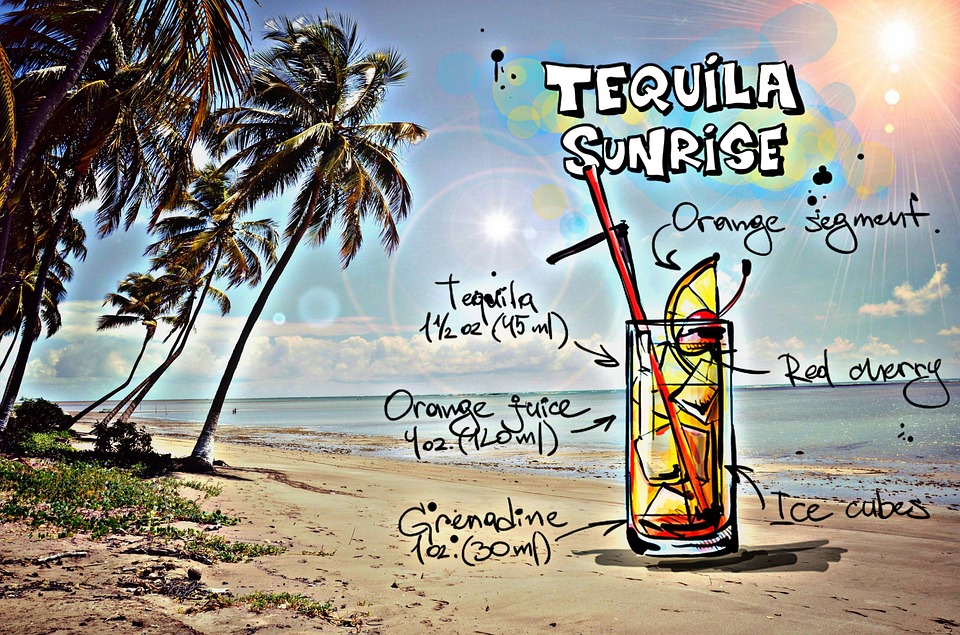 TEQUiLA
SUNRiSE
Orange segment.
Tequila
1 1/2 oz (45 ml)
Red cherry
Orange juice
4 oz. (120 ml)
Ice cubes
Grenadine
1 oz. (30 ml)